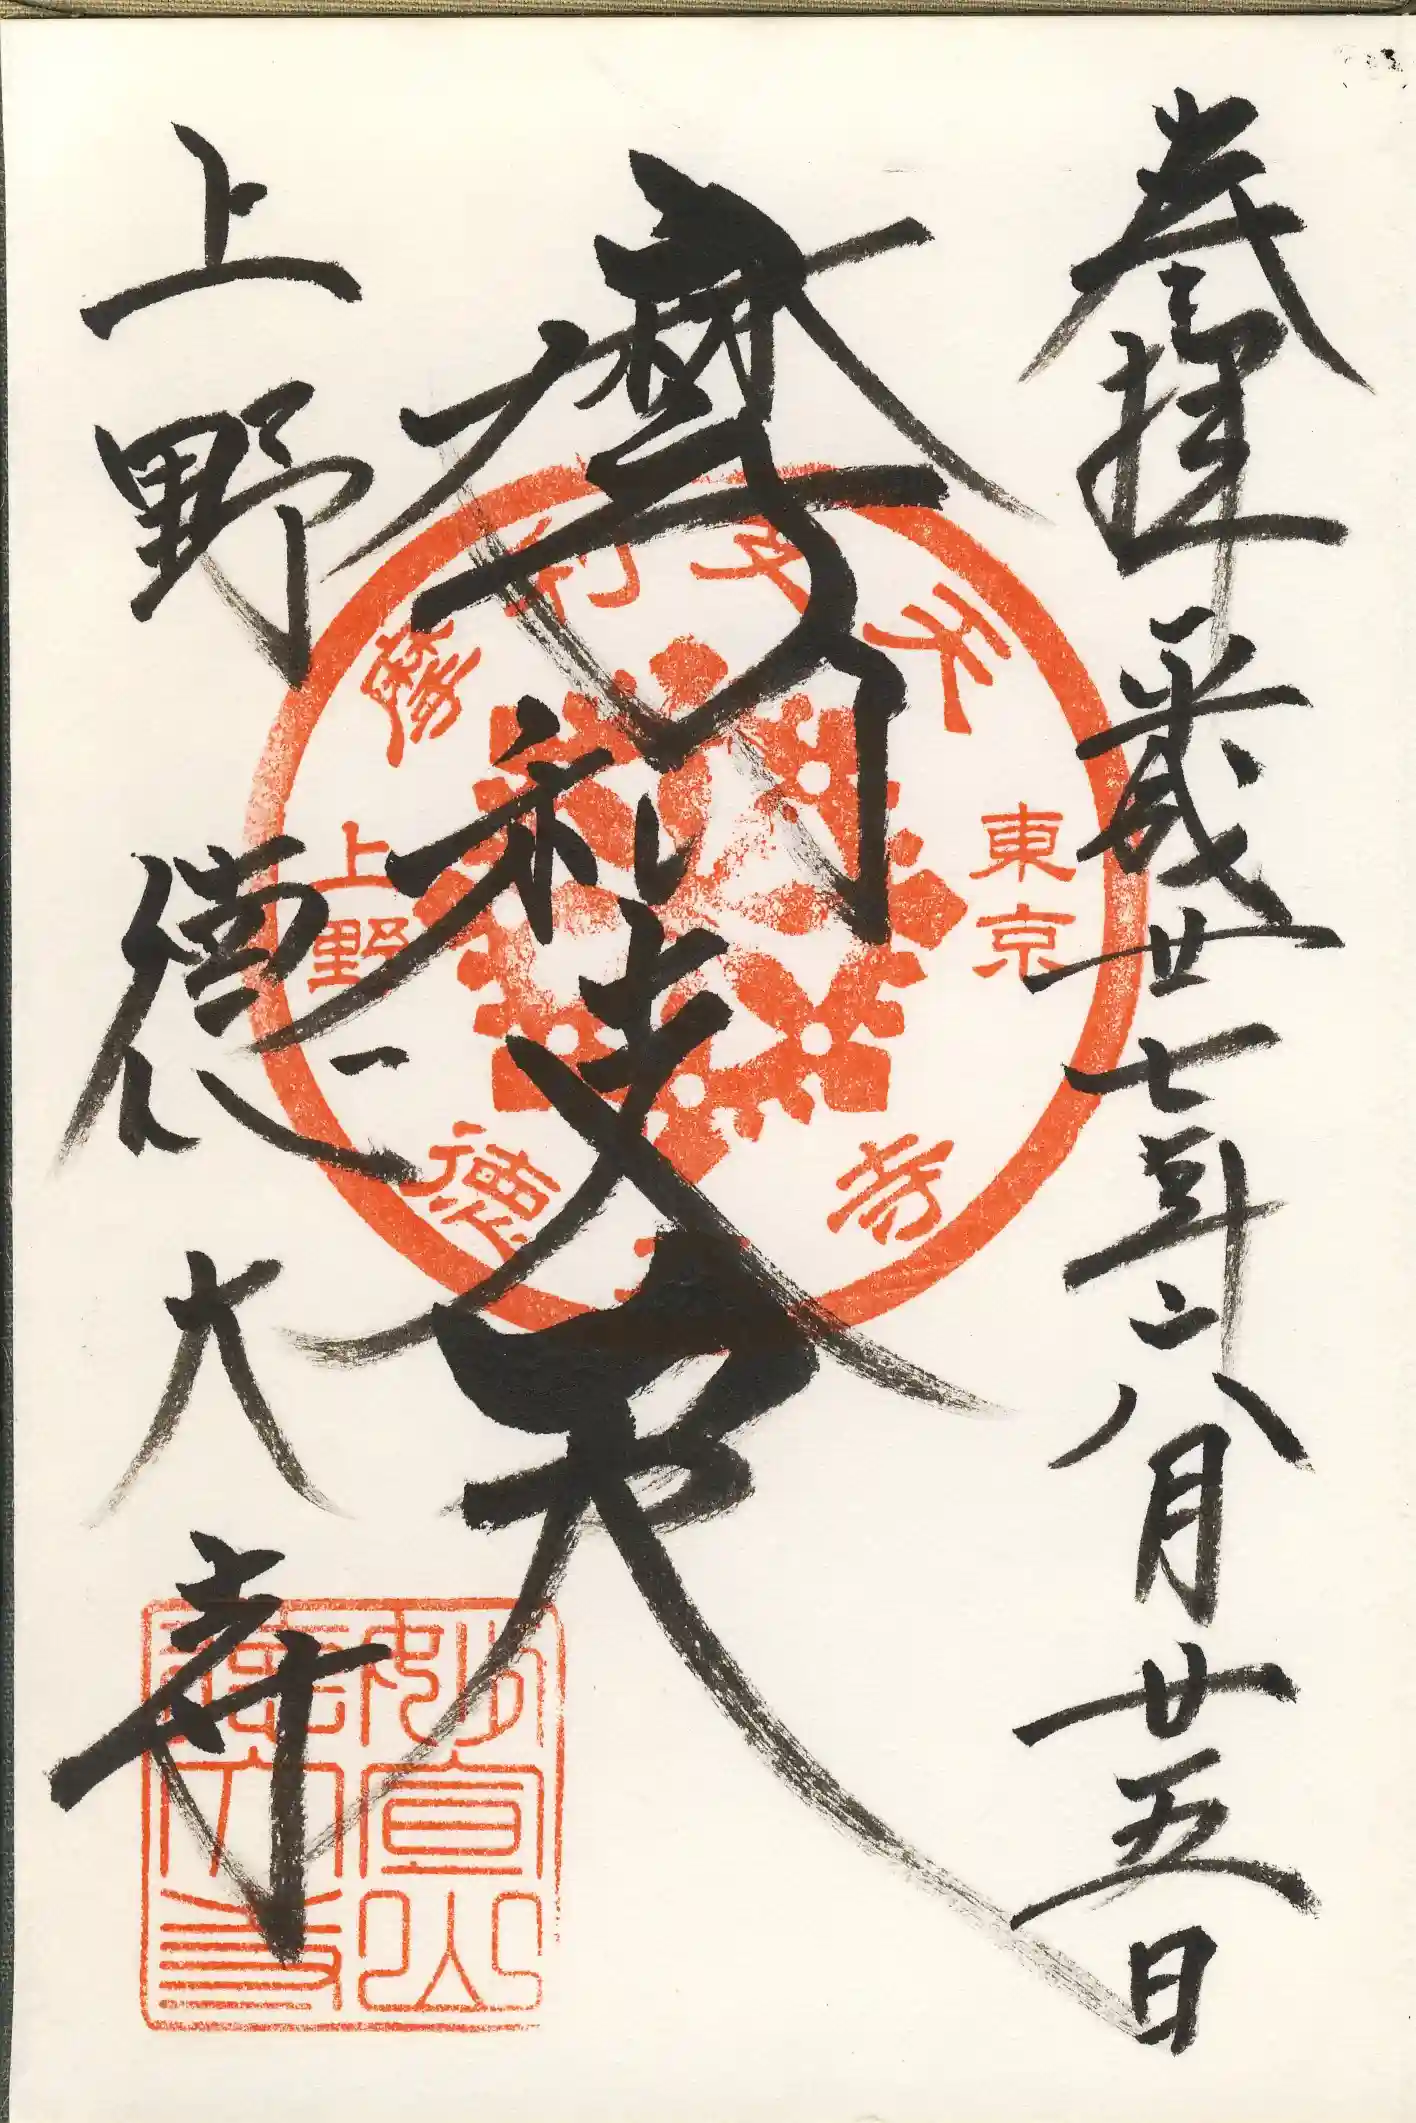 参拝 平成廿七年八月廿五日
摩利支天
上野 徳大寺
摩利支天
東京
上野
徳大寺
妙宣山
徳大寺